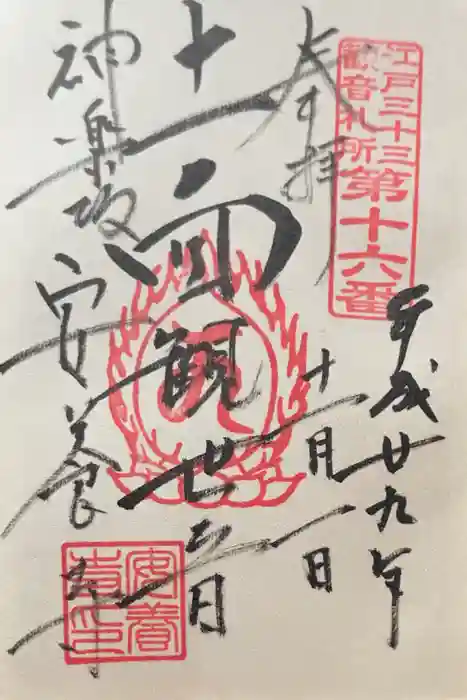 江戸三十三
観音札所
第十六番
奉拝
平成廿九年
十一月一日
十一面観世音
神楽坂
安養寺
安養
寺印